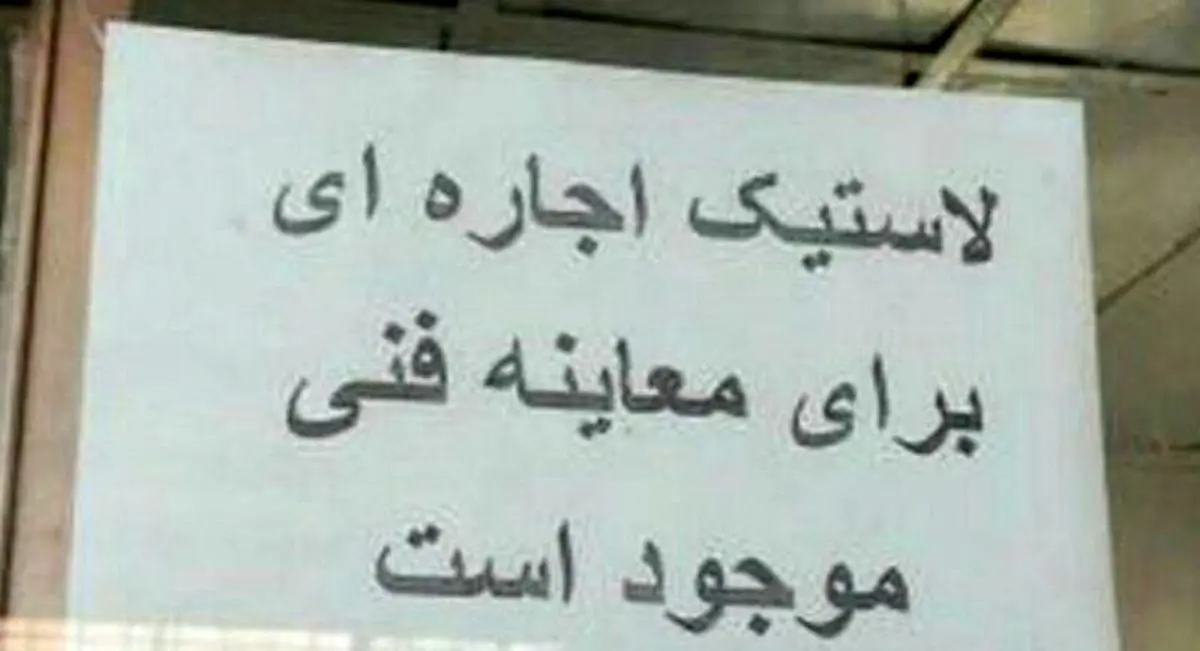 لاستیک اجاره ای
برای معاینه فنی
موجود است